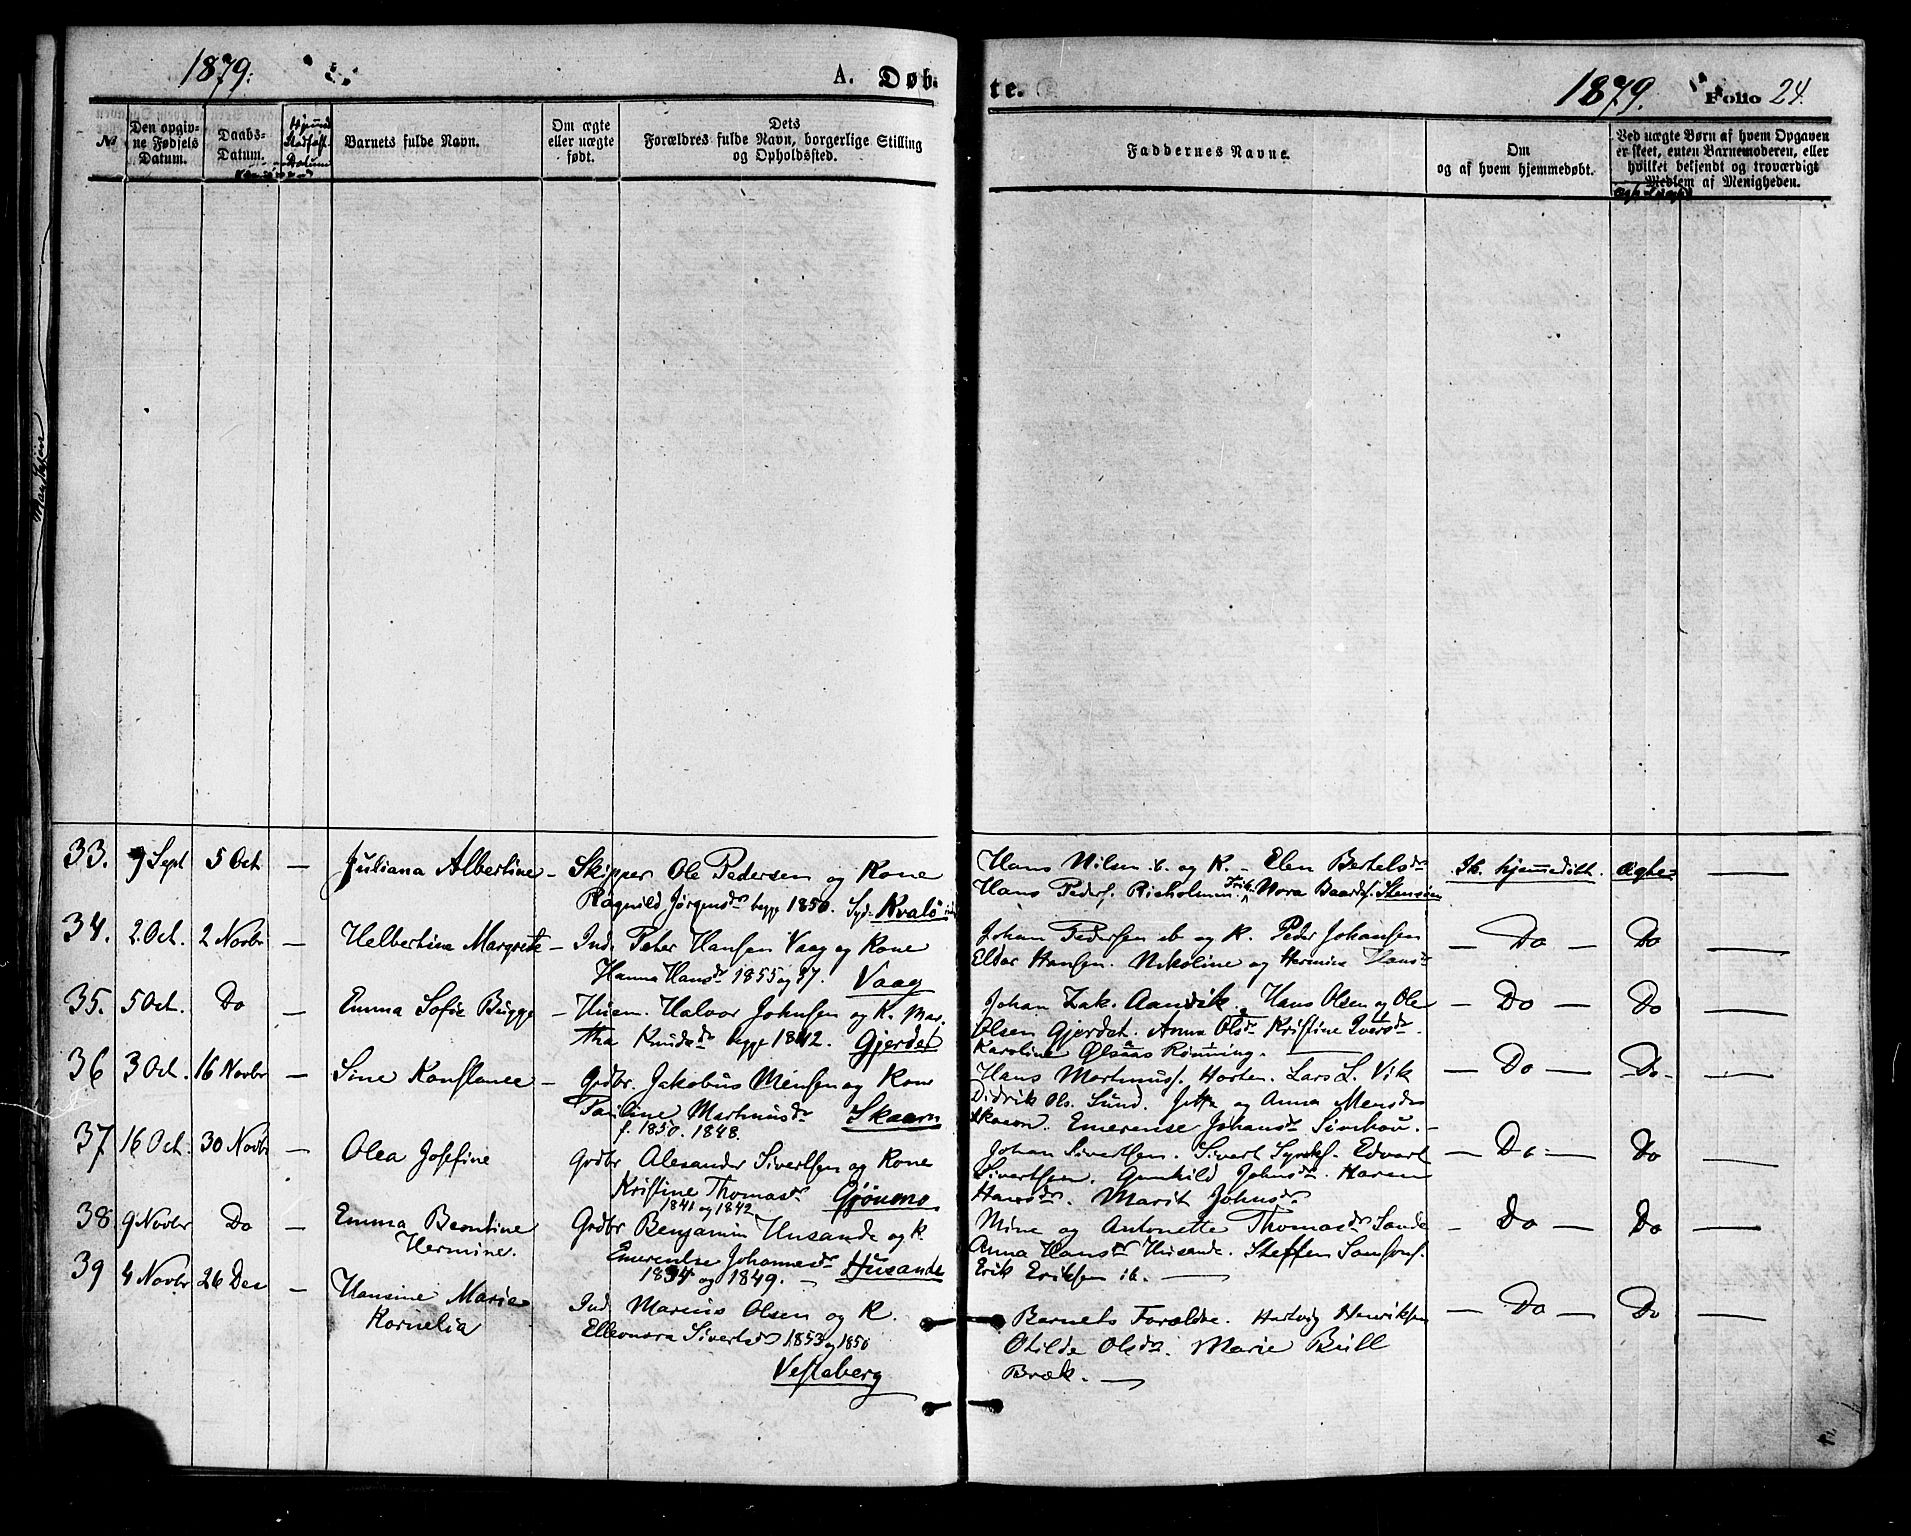 1879.
A. Døb-
te.
1879.
Folio 24.
№
Den opgiv-
ne Fødsels
Datum.
Daabs-
Datum.
Barnets fulde Navn.
Om ægte
eller uægte
født.
Dets
Forældres fulde Navn, borgerlige Stilling
og Opholdssted.
Faddernes Navne.
Om
og af hvem hjemmedøbt.
Ved uægte Børn af hvem Opgaven
er skeet, enten Barnemoderen, eller
hvilket bekjendt og troværdigt
Medlem af Menigheden.
33. 9 Sept 5 Oct — Juliana Albertine — Skipper Ole Pedersen og Kone
Ragnild Jørgensdr begge 1850. Kvalö
Hans Nilsen ib. og K. — Elen Bertelsdr
Hans Peders. Nora Baards. Stensöen
Ik. hjemmedöbt. Ægte —
34. 2 Oct. 2 Novbr — Helbertina Margrete — Ind. Peter Hansen Vaag og Kone
Hanna Hansdr 1855 og 37. Vaag
Johan Pedersen ib og K. Peder Johansen
Eldar Hansen. Nikoline og Hansdr
— Do — Do —
35. 5 Oct. Do — Emma Sofie Bugge — Husm. Halvor Johnsen og K. Mar-
tha Knudsdr begge 1842. Gjerdet
Johan Zak. Aandvik. Hans Olsen og Ole
Olsen Gjerdet. Anna Olsdr Kristine Iversdr.
Karoline Rönning. —
— Do — Do —
36 3 Oct. 16 Novbr — Sine Konstance — Grdbr. Jakobus Mensen og Kone
Pauline Martinusdr Skaarn
f. 1850. 1848.
Hans Martinuss. Horten. Lars L. Vik
Didrik Ols. Sund. Jetta og Anna Mensdr
Skaarn. Emerense Johansdr
— Do — Do —
37 16 Oct. 30 Novbr — Olea Josefine Grdbr Alexander Sivertsen og Kone
Kristine Thomasdr Gjönmo
1841 og 1842
Johan Sivertsen. Sivert Edvart
Sivertsen. Gunhild Johnsdr. Haren
Hansdr. Marit Johnsdr
— Do — Do
38 9 Novbr Do — Emma Berntine
Hermine.
Grdbr Benjamin Husande og K.
Emerentse Johannesdr Husande
1834 og 1849. —
Mine og Antonette Thomasdr Sande
Anna Hansdr Husande. Steffen Samsons.
Erik Eriksen ib. —
— Do — Do —
39 4 Novbr 26 Dec — Hansine Marie
Kornelia
Ind. Marius Olsen og K.
Elleonora Sivertsdr 1853 og 1850
Vestaberg
Barnets Forældre. Hartvig Henriksen
Otilde Olsdr. Marie Bull
Bræk. —
— Do — Do —